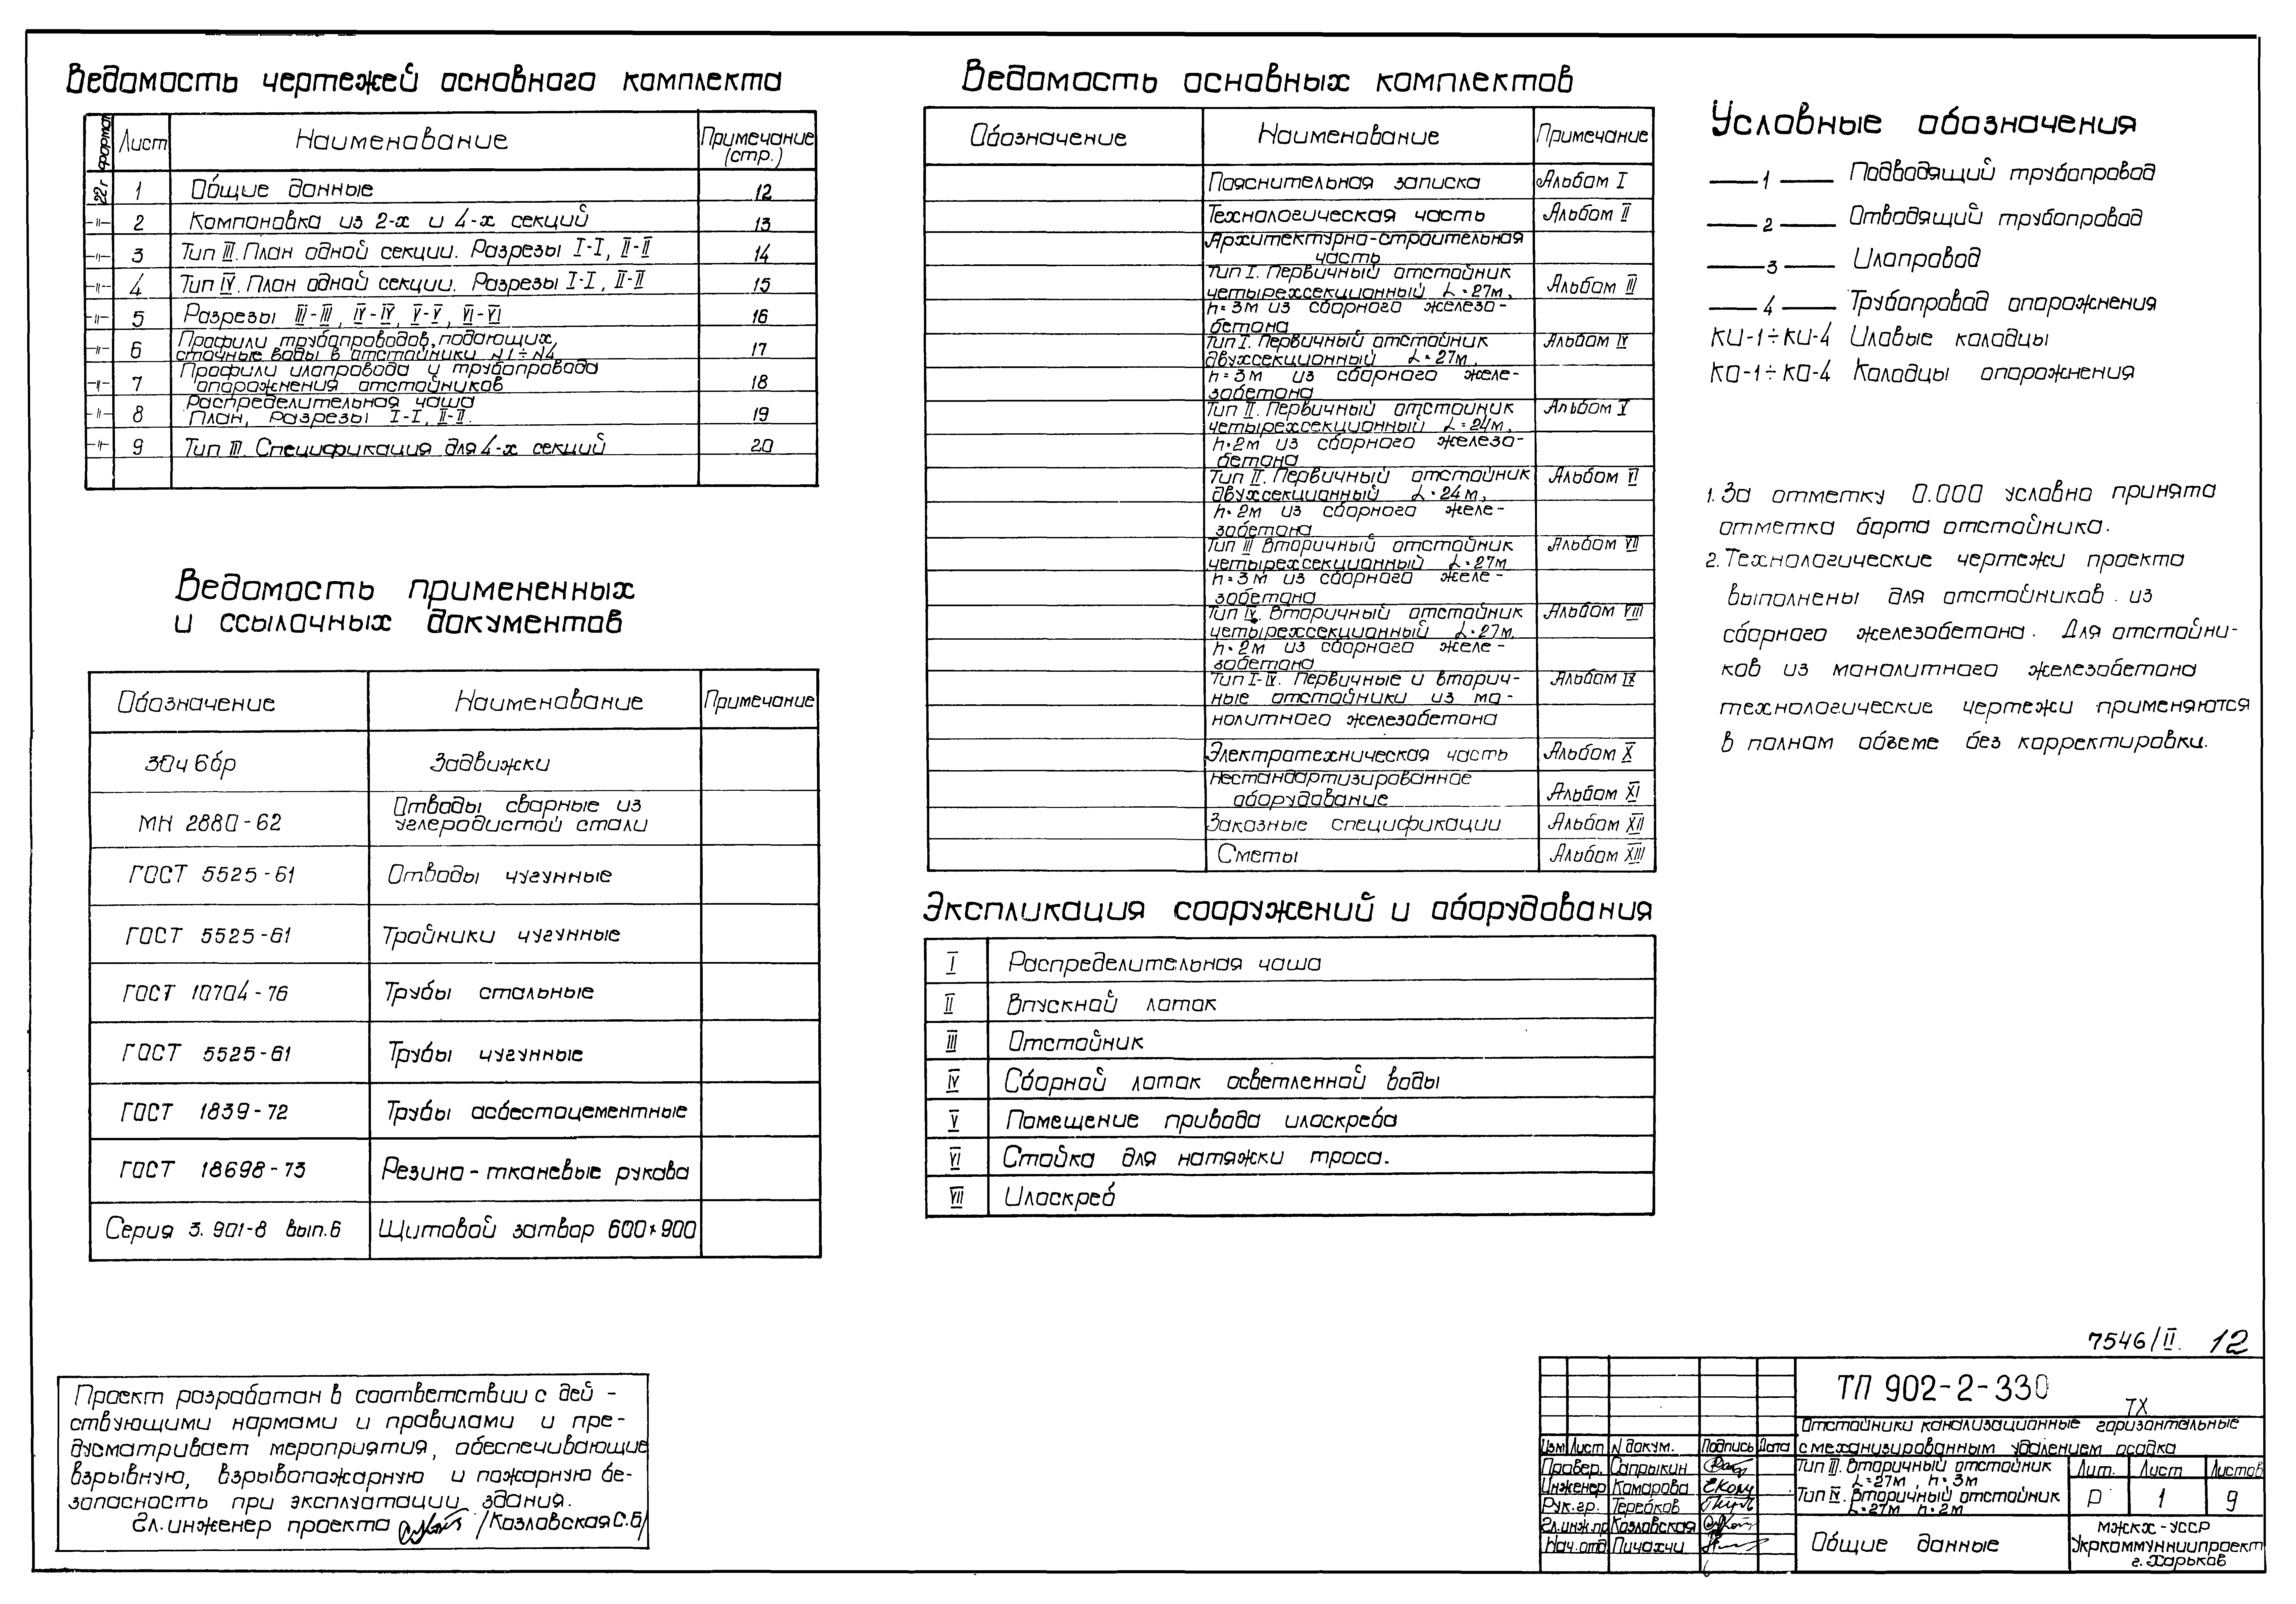 Ведомость чертежей основного комплекта
формат
Лист
Наименование
Примечание
(стр.)
22г
1
Общие данные
12
-"-
2
Компоновка из 2-х и 4-х секций
13
-"-
3
Тип III. План одной секции. Разрезы I-I, II-II
14
-"-
4
Тип IV. План одной секции. Разрезы I-I, II-II
15
-"-
5
Разрезы III-III, IV-IV, V-V, VI-VI
16
-"-
6
Профили трубопроводов, подающих
сточные воды в отстойники N1÷N4
17
-"-
7
Профили илопровода и трубопровода
опорожнения отстойников
18
-"-
8
Распределительная чаша
План, Разрезы I-I, II-II.
19
-"-
9
Тип III. Спецификация для 4-х секций
20
Ведомость примененных
и ссылочных документов
Обозначение
Наименование
Примечание
30ч 6бр
Задвижки
МН 2880-62
Отводы сварные из
углеродистой стали
ГОСТ 5525-61
Отводы чугунные
ГОСТ 5525-61
Тройники чугунные
ГОСТ 10704-76
Трубы стальные
ГОСТ 5525-61
Трубы чугунные
ГОСТ 1839-72
Трубы асбестоцементные
ГОСТ 18698-73
Резино-тканевые рукава
Серия 3.901-8 вып.6
Щитовой затвор 600×900
Проект разработан в соответствии с дей-
ствующими нормами и правилами и пре-
дусматривает мероприятия, обеспечивающие
взрывную, взрывопожарную и пожарную бе-
зопасность при эксплуатации здания.
Гл. инженер проекта /Козловская С.Б/
Ведомость основных комплектов
Обозначение
Наименование
Примечание
Пояснительная записка
Альбом I
Технологическая часть
Альбом II
Архитектурно-строительная
часть
Тип I. Первичный отстойник
четырехсекционный L=27м,
Альбом III
h=3м из сборного железо-
бетона
Тип I. Первичный отстойник
двухсекционный L=27м,
Альбом IV
h=3м из сборного желе-
зобетона
Тип II. Первичный отстойник
четырехсекционный L=24м,
Альбом V
h=2м из сборного железо-
бетона
Тип II. Первичный отстойник
двухсекционный L=24м,
Альбом VI
h=2м из сборного желе-
зобетона
Тип III Вторичный отстойник
четырехсекционный L=27м
Альбом VII
h=3м из сборного желе-
зобетона
Тип IV. Вторичный отстойник
четырехсекционный L=27м,
Альбом VIII
h=2м из сборного желе-
зобетона
Тип I-IV. Первичные и вторич-
ные отстойники из мо-
Альбом IX
нолитного железобетона
Электротехническая часть
Альбом X
Нестандартизированное
оборудование
Альбом XI
Заказные спецификации
Альбом XII
Сметы
Альбом XIII
Экспликация сооружений и оборудования
I
Распределительная чаша
II
Впускной лоток
III
Отстойник
IV
Сборной лоток осветленной воды
V
Помещение привода илоскреба
VI
Стойка для натяжки троса.
VII
Илоскреб
Условные обозначения
1 Подводящий трубопровод
2 Отводящий трубопровод
3 Илопровод
4 Трубопровод опорожнения
КИ-1÷КИ-4 Иловые колодцы
КО-1÷КО-4 Колодцы опорожнения
1. За отметку 0.000 условно принята
отметка борта отстойника.
2. Технологические чертежи проекта
выполнены для отстойников из
сборного железобетона. Для отстойни-
ков из монолитного железобетона
технологические чертежи применяются
в полном объеме без корректировки.
7546/II. 12
ТП 902-2-330
ТХ
Отстойники канализационные горизонтальные
с механизированным удалением осадка
Изм Лист N докум. Подпись Дата
Провер. Сапрыкин
Инженер Комарова
Рук.гр. Теребков
Гл.инж.пр Козловская
Нач.отд. Пичахчи
Тип III. Вторичный отстойник
L=27м, h=3м
Тип IV. Вторичный отстойник
L=27м h=2м
Лит. Лист Листов
Р 1 9
Общие данные
МЖКХ-УССР
Укркоммунниипроект
г. Харьков